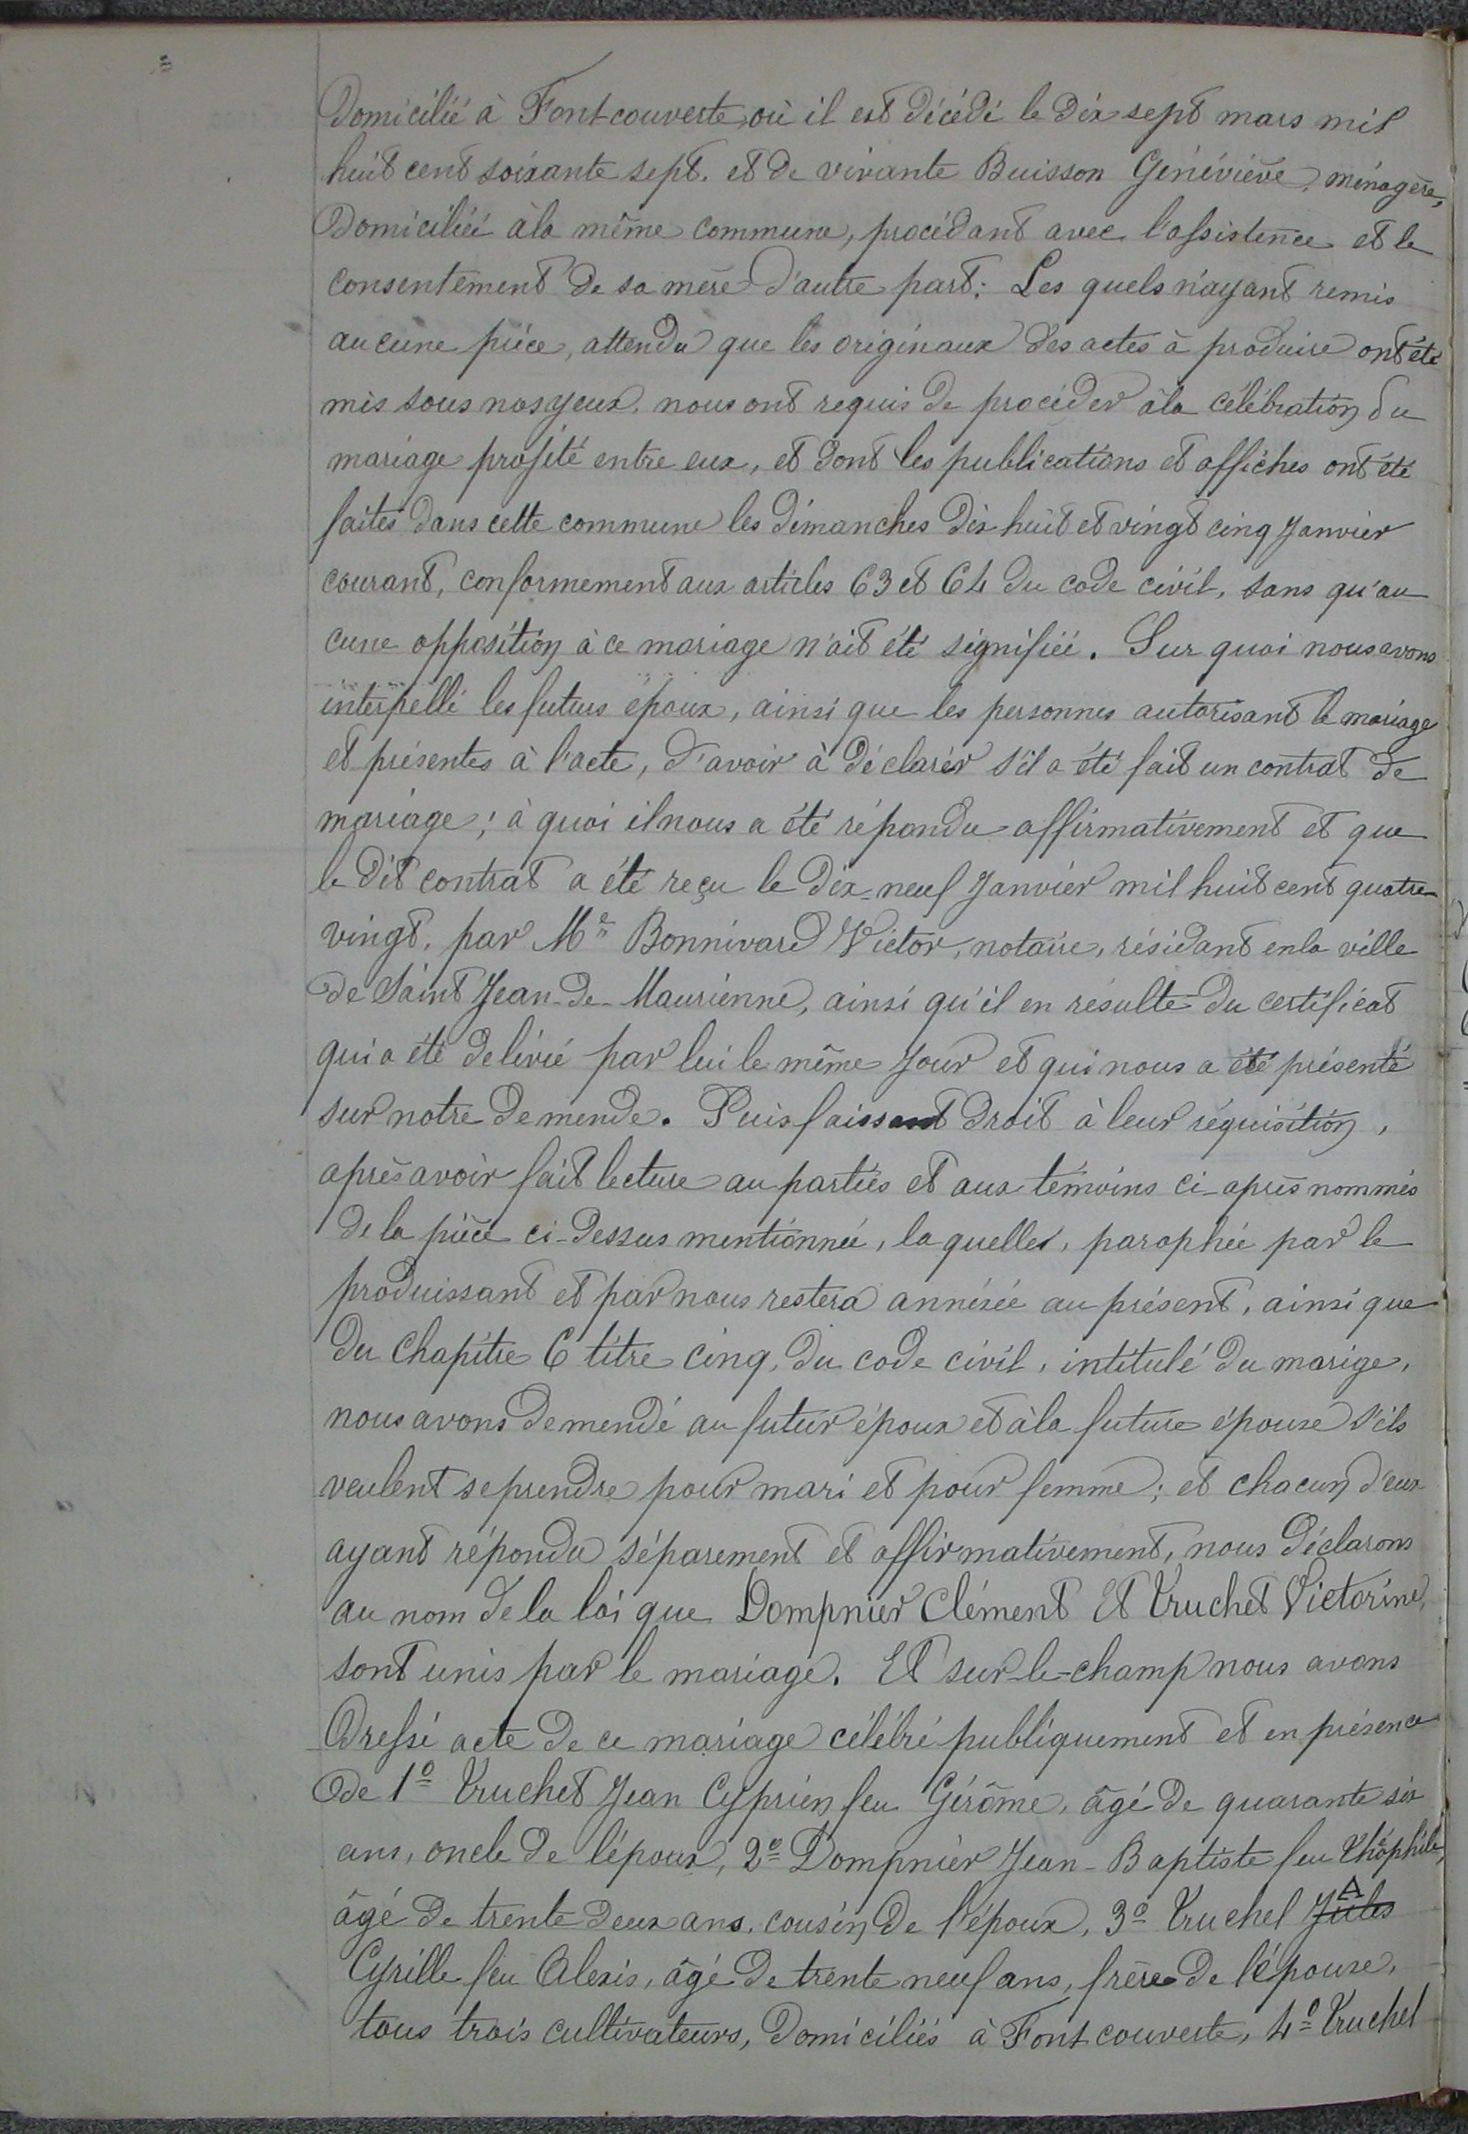 Domicilié à Fontcouverte, où il est décédé le dix sept mars mil
huit cent soixante sept. et de vivante Buisson Généviève, ménagère,
Domiciliée à la même commune, procédant avec l'assistence et le
consentement de sa mère d'autre part: Les quels n'ayant remis
aucune pièce, attendu que les originaux des actes à produire ont été
mis sous nos yeux, nous ont requis de procéder à la célébration du
mariage projité entre eux, et dont les publications et affiches ont été
faites dans cette commune les dimanches dix huit et vingt cinq Janvier
courant, conformement aux articles 63 et 64 du code civil, sans qu'au
cune opposition à ce mariage n'ait été signifiée. Sur quoi nous avons
interpellé les futurs époux, ainsi que les personnes autorisant le mariage
et présentes à l'acte, d'avoir à déclarer s'il a été fait un contrat de
mariage; à quoi il nous a été répondu affirmativement et que
le dit contrat a été reçu le dix-neuf Janvier mil huit cent quatre
vingt, par Me Bonnivard Victor, notaire, résidant en la ville
de Saint Jean-de-Maurienne, ainsi qu'il en résulte du certificat
qui a été delivré par lui le même jour et qui nous a été présenté
sur notre demende. Puis faissant droit à leur réquisition,
après avoir fait lecture au parties et aux témoins ci-après nommés
de la pièce ci-dessus mentionnée, la quelle, paraphée par le
produissant et par nous restera annéxée au présent, ainsi que
du Chapitre 6 titre cinq, du code civil, intitulé du marige,
nous avons demendé au futur époux et à la future épouse s'ils
veulent se prendre pour mari et pour femme; et chacun d'eux
ayant répondu séparement et affirmativement, nous déclarons
au nom de la loi que Dompnier Clément Et Truchet Victorine,
sont unis par le mariage. Et sur-le-champ nous avons
dressé acte de ce mariage célébré publiquement et en présence
de 1o Truchet Jean Cyprien feu Gérôme, âgé de quarante six
ans, oncle de l'époux, 2o Dompnier Jean-Baptiste feu Théophile,
âgé de trente deux ans, cousin de l'époux, 3o Truchet Jules
Cyrille feu Alexis, âgé de trente neuf ans, frère de l'épouse,
tous trois cultivateurs, domiciliés à Fontcouverte, 4o Truchet